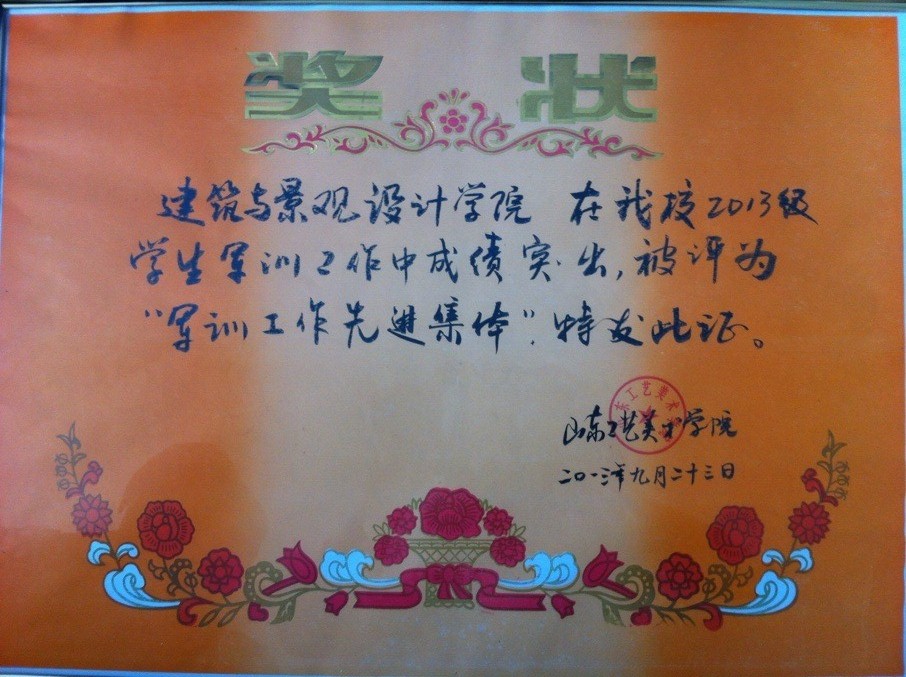 奖状
建筑与景观设计学院 在我校2013级
学生军训工作中成绩突出,被评为
“军训工作先进集体”,特发此证。
山东工艺美术学院
二〇一三年九月二十三日